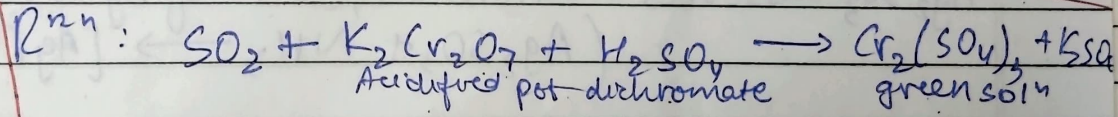 Rxn : SO₂ + K₂Cr₂O₇ + H₂SO₄ ⟶ Cr₂(SO₄)₃ + K₂SO₄
Acidified pot-dichromate green solⁿ